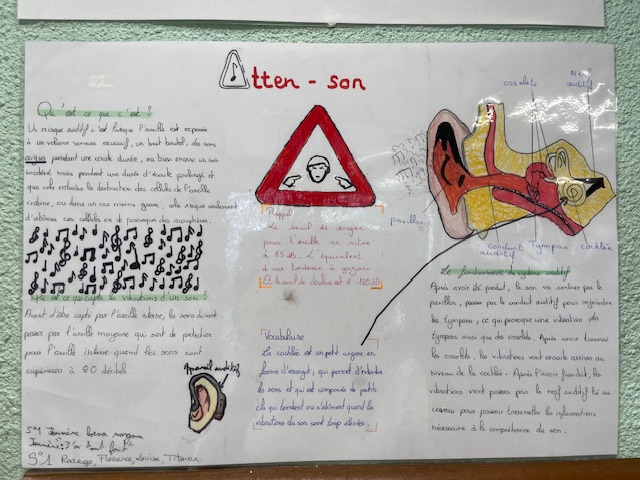 Atten - son
Qu'est ce que c'est ?
Un risque auditif c'est lorsque l'oreille est exposée
à un volume sonore excessif, un bruit brutal, des sons
aigus pendant une courte durée, ou bien encore un son
modéré mais pendant une durée d'écoute prolongée et
que cela entraîne la destruction des cellules de l'oreille
interne, ou dans un cas moins grave, cela risque seulement
d'abîmer ces cellules ou de provoquer des acouphènes.
Qu'est ce qui capte les vibrations d'un son ?
Avant d'être capté par l'oreille interne, les sons doivent
passer par l'oreille moyenne qui sert de protection
pour l'oreille interne quand les sons sont
supérieurs à 80 décibel.
Appareil auditif
5°1
5°1 Rodrigo, Florence, Louise, Titouan
Rappel
Le seuil de danger
pour l'oreille se situe
à 85 dB. L'équivalent
d'une tondeuse à gazon.
Et le seuil de douleur est à 120 dB
Vocabulaire
La cochlée est un petit organe en
forme d'escargot, qui permet d'entendre
les sons et qui est composée de petits
cils qui tombent ou s'abîment quand les
vibrations du son sont trop élevées.
osselets
Nerf
auditif
pavillon
conduit
auditif
Tympan
cochlée
Le fonctionnement du système auditif
Après avoir été produit, le son va rentrer par le
pavillon, passer par le conduit auditif pour rejoindre
les tympans, ce qui provoque une vibration des
tympans ainsi que des osselets. Après avoir traversé
les osselets, les vibrations vont ensuite arriver au
niveau de la cochlée. Après l'avoir franchit, les
vibrations vont passer par le nerf auditif lié au
cerveau pour pouvoir transmettre les informations
nécessaire à la compréhension du son.